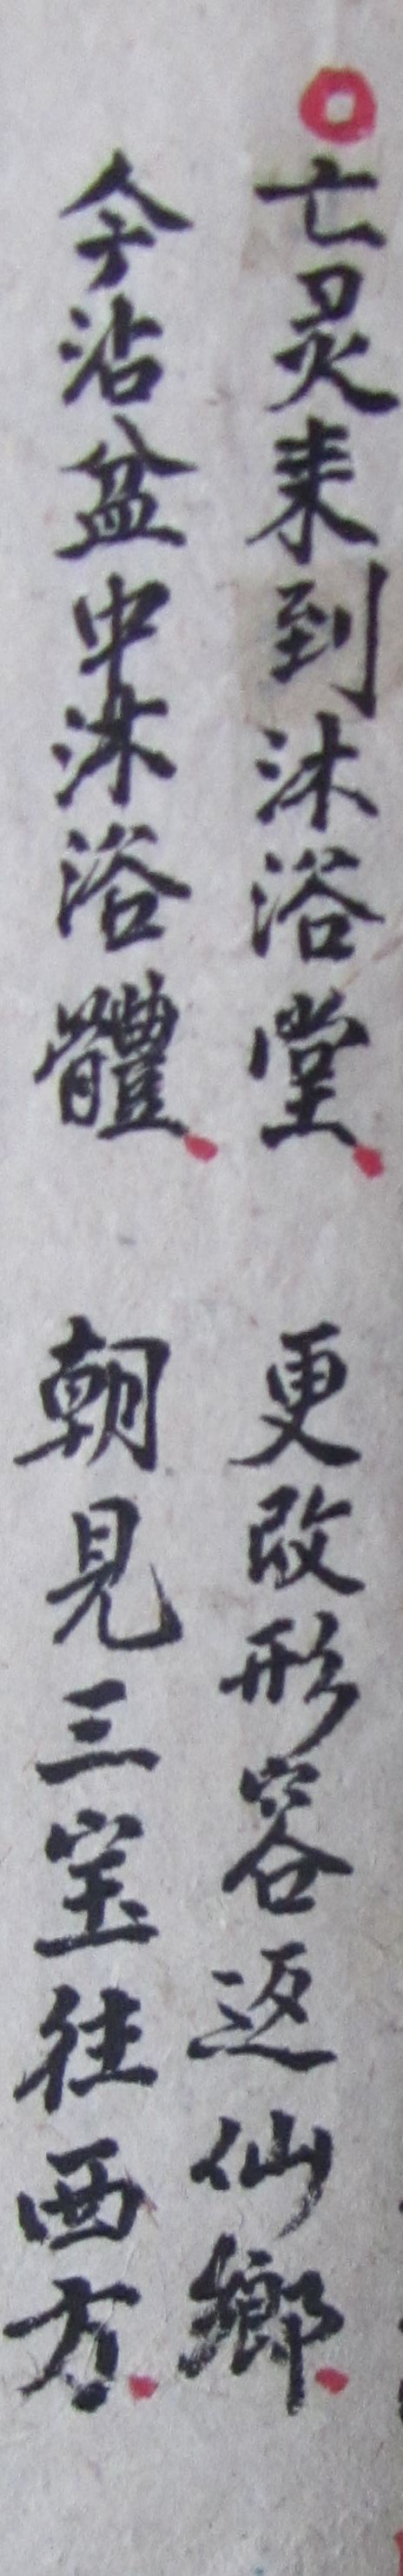 亡灵来到沐浴堂 更改形容返仙鄉
今沾盆中沐浴體 朝見三宝往西方